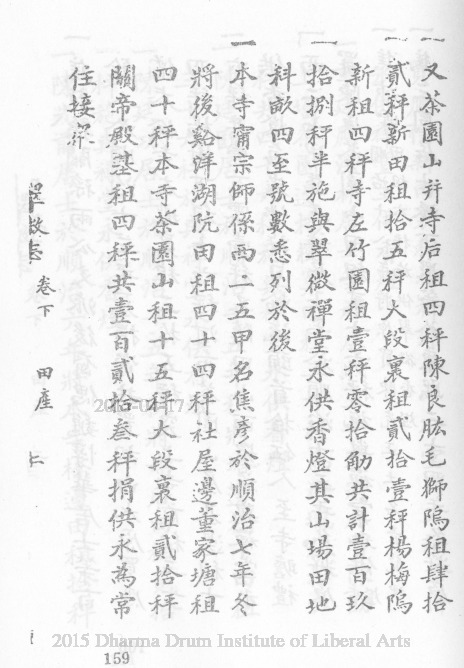 一又茶園山并寺后租四秤陳良肱毛獅塢租肆拾
貳秤新田租拾五秤大段裏租貳拾壹秤楊梅塢
新租四秤寺左竹園租壹秤零拾觔共計壹百玖
一拾捌秤半施與翠微禪堂永供香燈其山場田地
科畝四至號數悉列於後
一本寺甯宗師係西二五甲名焦彥於順治七年冬
將後谿洋湖阬田租四十四秤社屋邊董家塘租
四十秤本寺茶園山租十五秤大段裏租貳拾秤
關帝殿基租四秤共壹百貳拾叁秤捐供永為常
住接眾
卷下 田產
2015-04-17
2015 Dharma Drum Institute of Liberal Arts
159